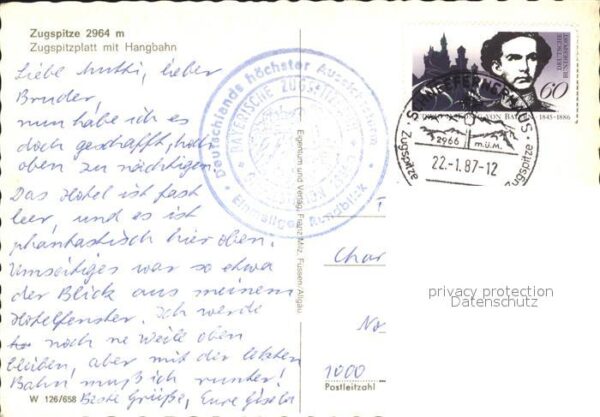 Zugspitze 2964 m
Zugspitzplatt mit Hangbahn
Liebe Mutti, lieber
Bruder,
nun habe ich es
doch geschafft, hoch
oben zu nächtigen.
Das Hotel ist fast
leer, und es ist
phantastisch hier oben.
Umseitiges war so etwa
der Blick aus meinem
Hotelfenster. Ich werde
noch ne Weile oben
bleiben, aber mit der letzten
Bahn muß ich runter!
Beste Grüße, Eure Gisela
W 126/658
Deutschlands höchster Aussichtsturm
BAYERISCHE ZUGSPITZ
Einmaliger Rundblick
Eigentum und Verlag Franz Milz, Füssen/Allgäu
DEUTSCHE BUNDESPOST
60
VON 1845-1886
SCHNEEFERNERHAUS
2966 m.ü.M.
Zugspitze
22.-1.87-12
Zugspitze
privacy protection
Datenschutz
1000
Postleitzahl